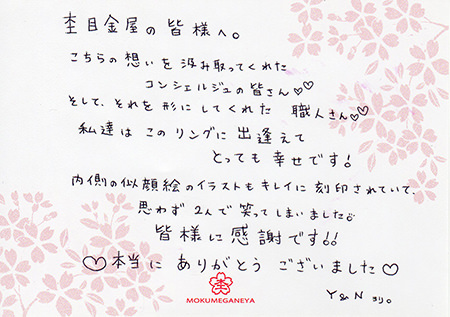 杢目金屋の皆様へ。
こちらの想いを汲み取ってくれた
コンシェルジュの皆さん♡♡
そして、それを形にしてくれた 職人さん♡♡
私達は このリングに 出逢えて
とっても 幸せです!
内側の似顔絵のイラストも キレイに 刻印されていて、
思わず 2人で 笑ってしまいました♪
皆様に 感謝です!!
♡本当に ありがとう ございました♡
MOKUMEGANEYA
Y&N より。